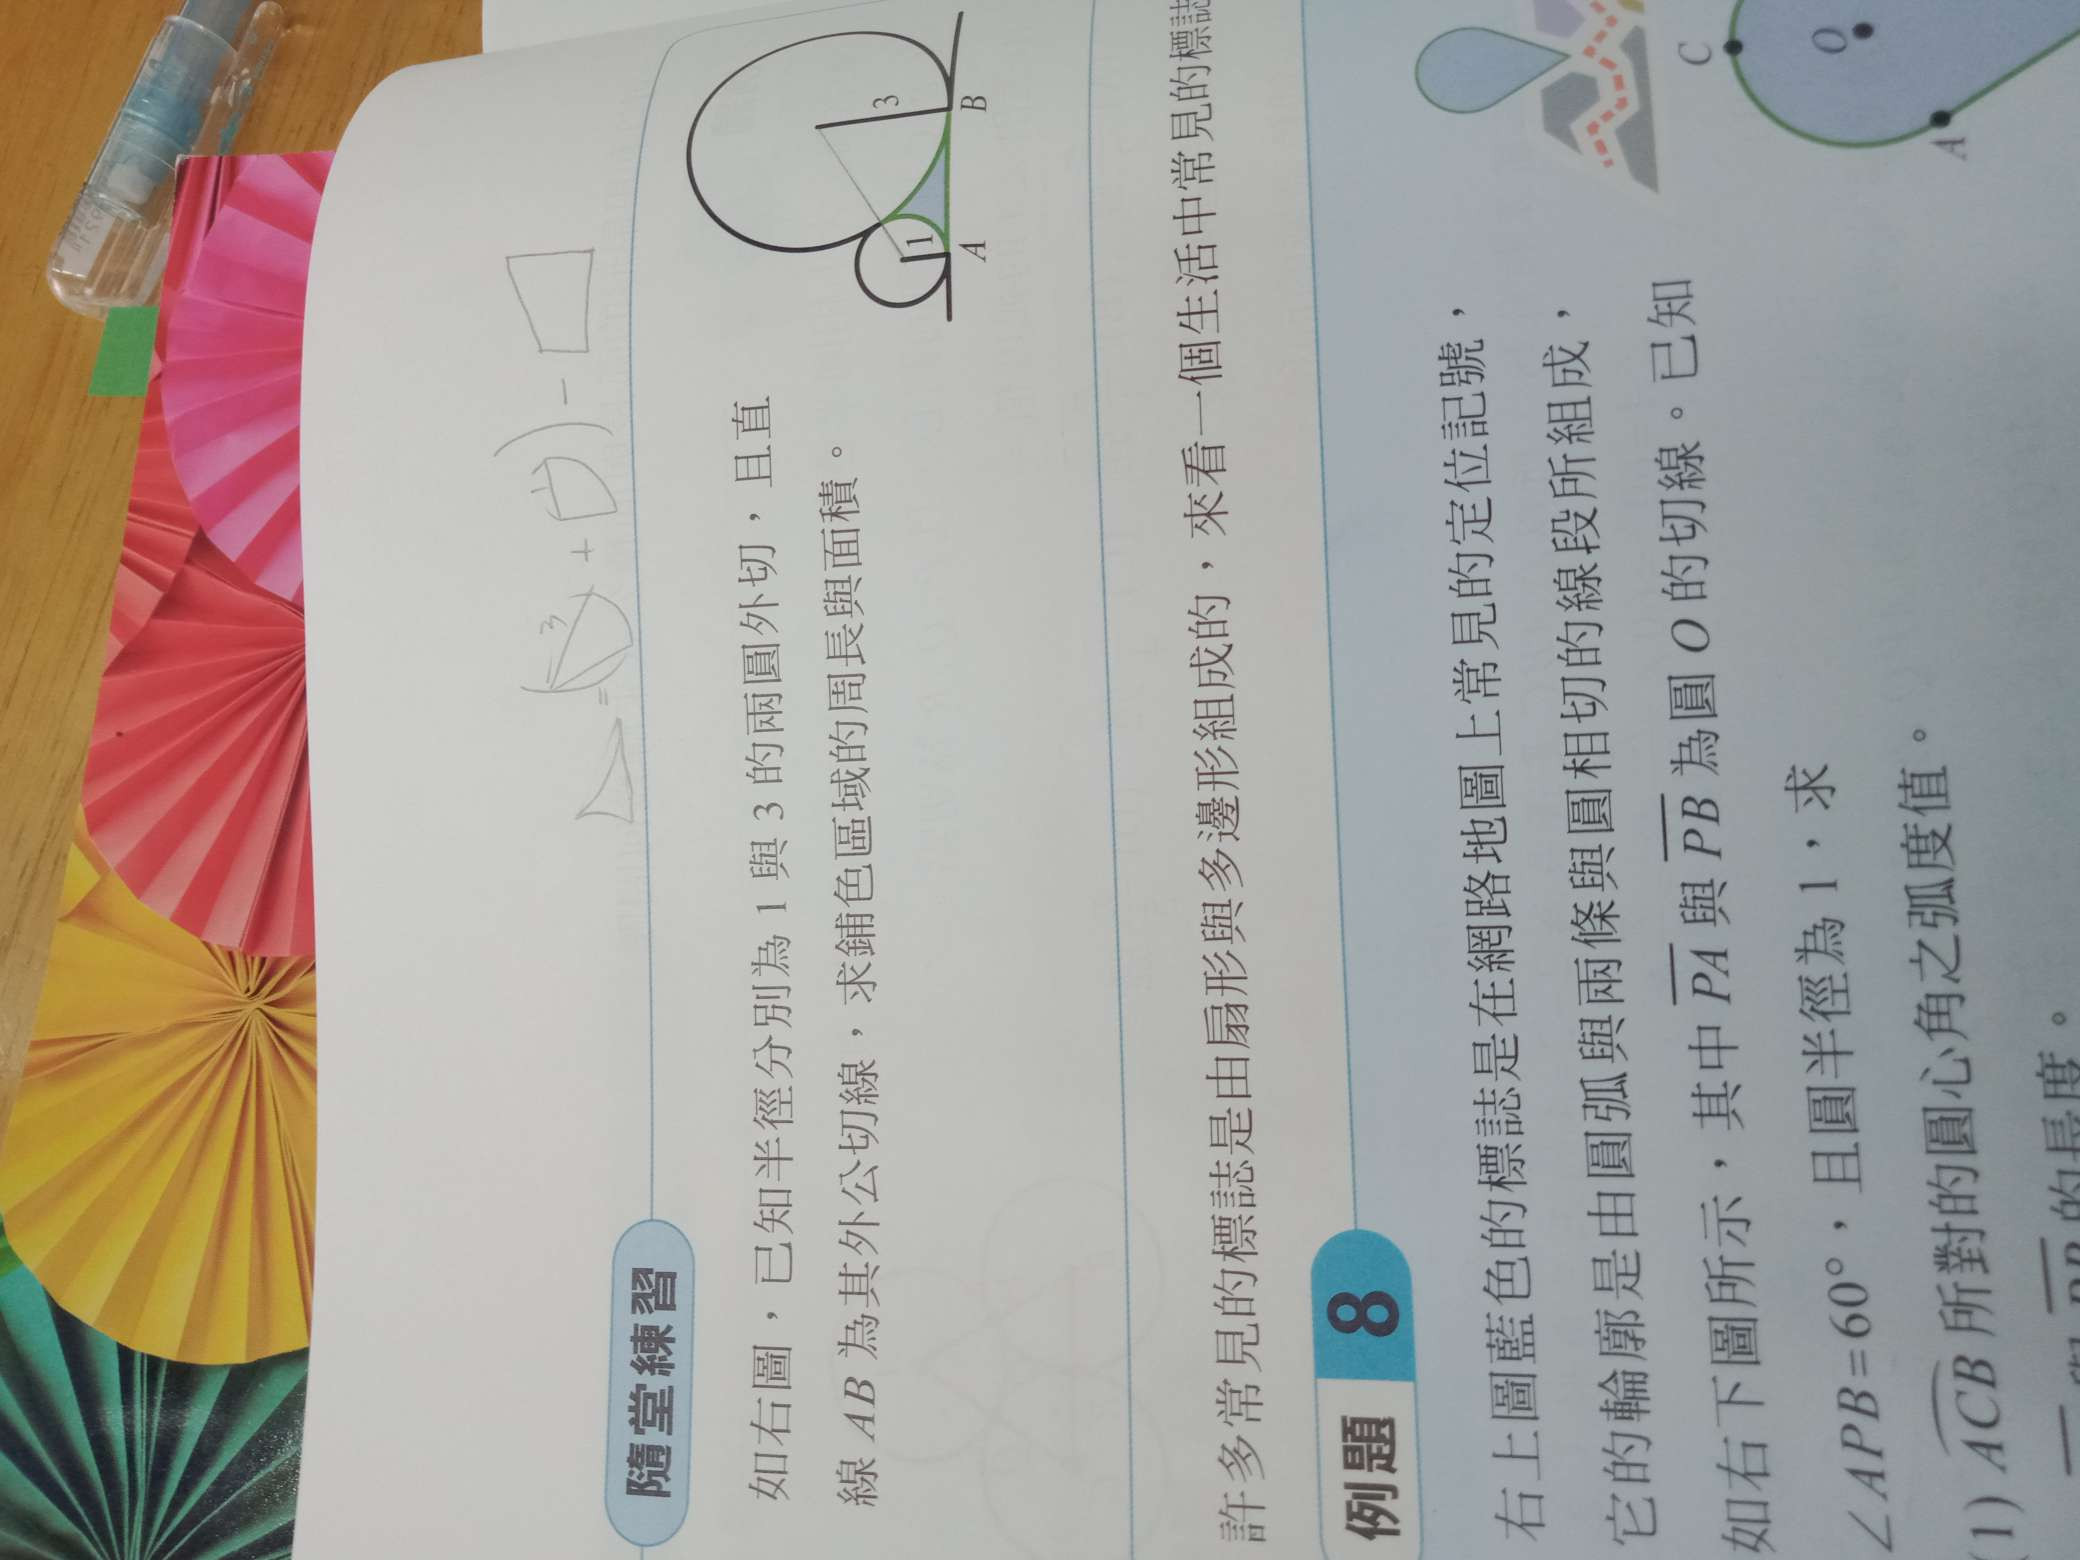 = ( 3 + ) −
隨堂練習
如右圖，已知半徑分別為 1 與 3 的兩圓外切，且直
線 AB 為其外公切線，求鋪色區域的周長與面積。
1
3
A
B
許多常見的標誌是由扇形與多邊形組成的，來看一個生活中常見的標誌
例題 8
右上圖藍色的標誌是在網路地圖上常見的定位記號，
它的輪廓是由圓弧與兩條與圓相切的線段所組成，
如右下圖所示，其中 PA 與 PB 為圓 O 的切線。已知
∠APB=60°，且圓半徑為 1，求
(1) ACB 所對的圓心角之弧度值。
的長度。
C
O
A